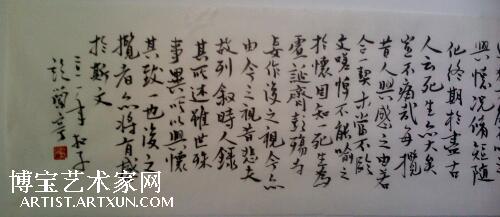 興懷況脩短隨
化終期於盡古
人云死生亦大矣
豈不痛哉每攬
昔人興感之由若
合一契未嘗不臨
文嗟悼不能喻之
於懷固知死生為
虛誕齊彭殤為
妄作後之視今亦
由今之視昔悲夫
故列敘時人錄
其所述雖世殊
事異所以興懷
其致一也後之
攬者亦將有感
於斯文
博宝艺术家网
ARTIST.ARTXUN.COM